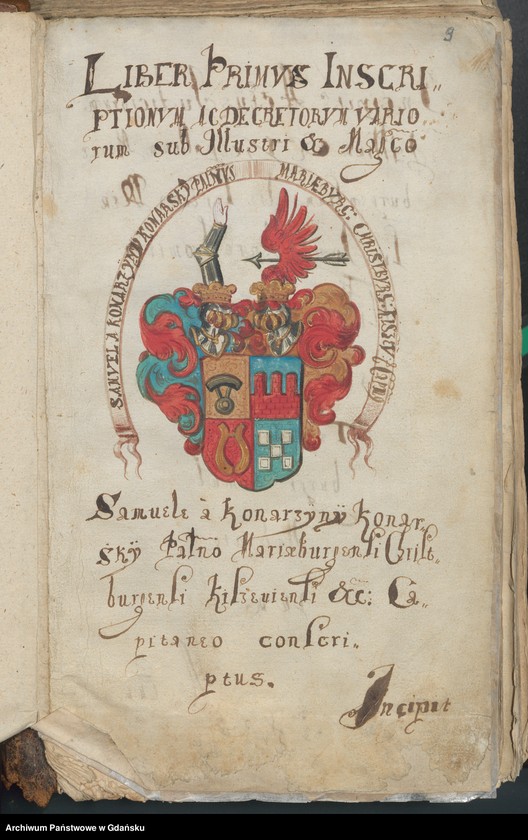 9
LIBER PRIMVS INSCRI„
PTIONVM AC DECRETORVM VARIO
rum sub Illustri & Magco
SAMVEL A KONARZYNY KONARSKY PALNVS MARIÆBVRG: CHRISTBVRG:
Samuele à Konarzÿnÿ Konar„
skÿ Palno Mariæburgensi Christ„
burgensi Kiszeviensi &c: Ca„
pitaneo conscri„
ptus.
Incipit
Archiwum Państwowe w Gdańsku